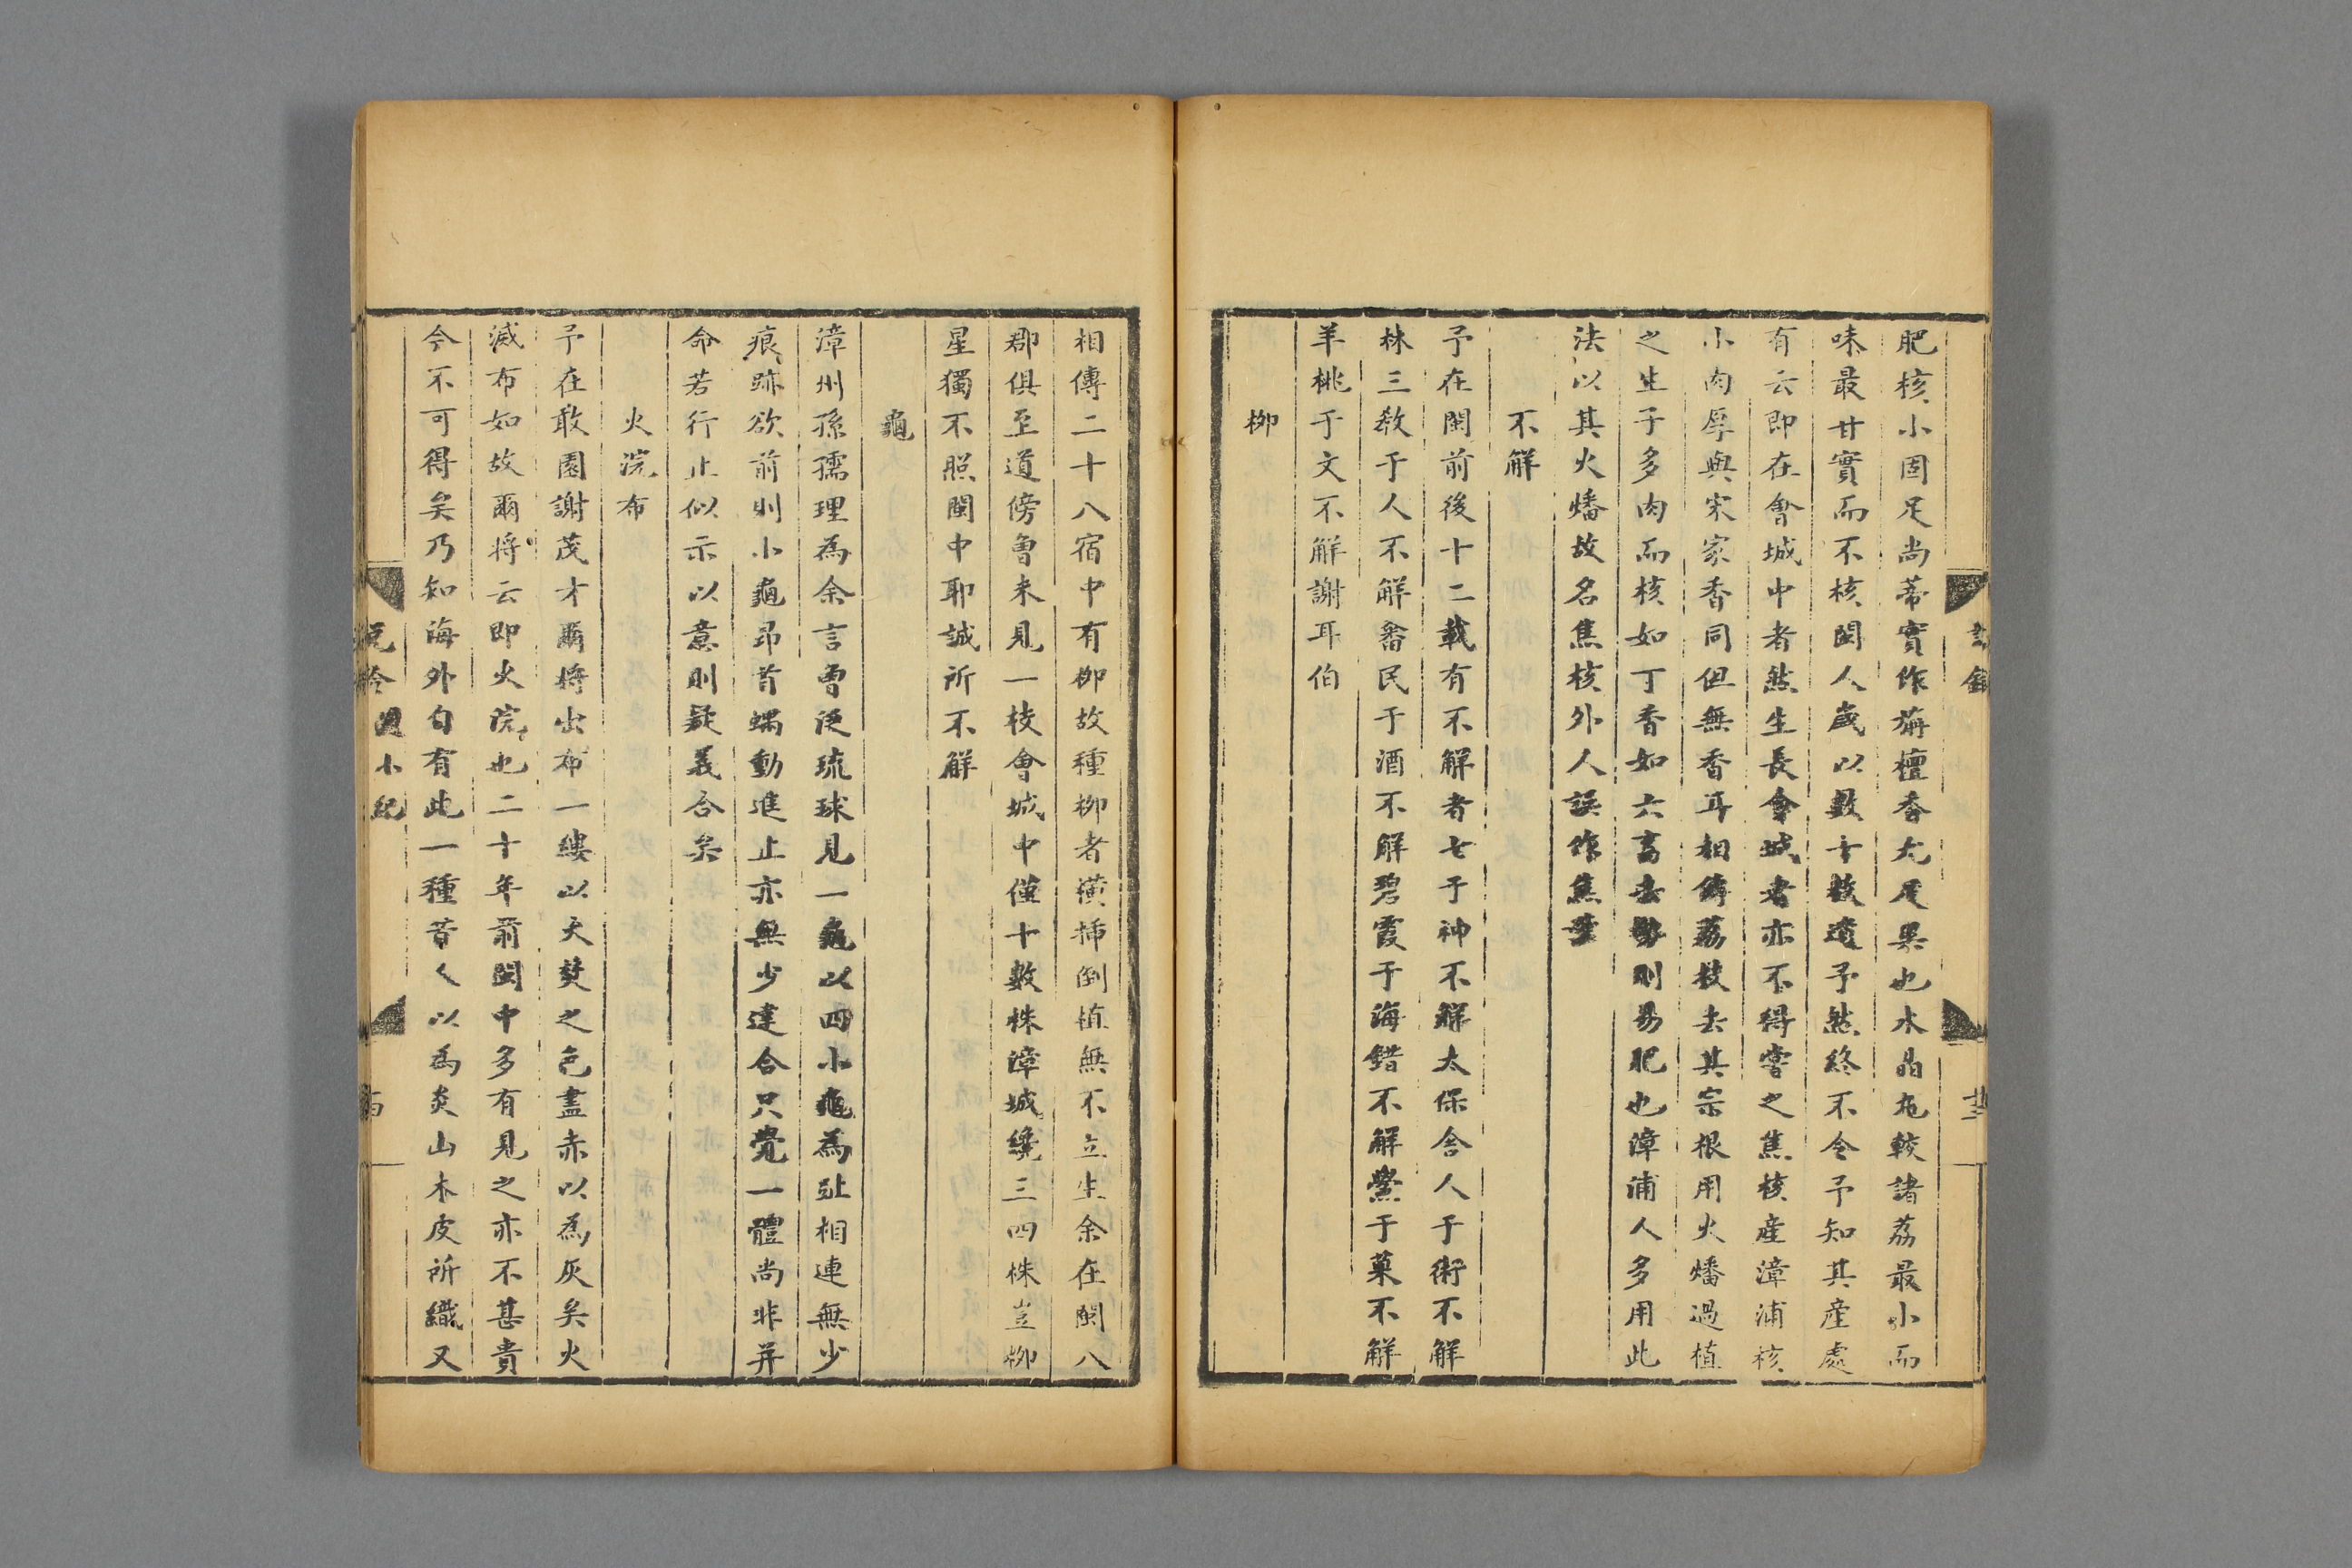 肥核小固足尚蒂實作旃檀香尤足異也水晶丸較諸荔最小而
味最甘實而不核閩人歲以數十枚遺予然終不令予知其產處
有云即在會城中者然生長會城者亦不得嘗之焦核產漳浦核
小肉厚與宋家香同但無香耳相傳荔枝去其宗根用火燔過植
之生子多肉而核如丁香如六畜去勢則易肥也漳浦人多用此
法以其火燔故名焦核外人誤作蕉葉
不解
予在閩前後十二載有不解者七于神不解太保舍人于術不解
林三教于人不解畨民于酒不解碧霞于海錯不解鱟于菓不解
羊桃于文不解謝耳伯
栁
相傳二十八宿中有栁故種栁者橫揷倒植無不立生余在閩八
郡俱至道傍魯未見一枝會城中僅十數株漳城纔三四株豈栁
星獨不照閩中耶誠所不解
龜
漳州孫孺理為余言曾泛琉球見一龜以四小龜為趾相連無少
痕跡欲前則小龜昂首蠕動進止亦無少違合只覺一體尚非并
命若行止似示以意則疑義合矣
火浣布
予在敢園謝茂才爾將出布一縷以火焚之色盡赤以為灰矣火
滅布如故爾將云即火浣也二十年前閩中多有見之亦不甚貴
今不可得矣乃知海外自有此一種昔人以為炎山木皮所織又
說鈴 閩小紀